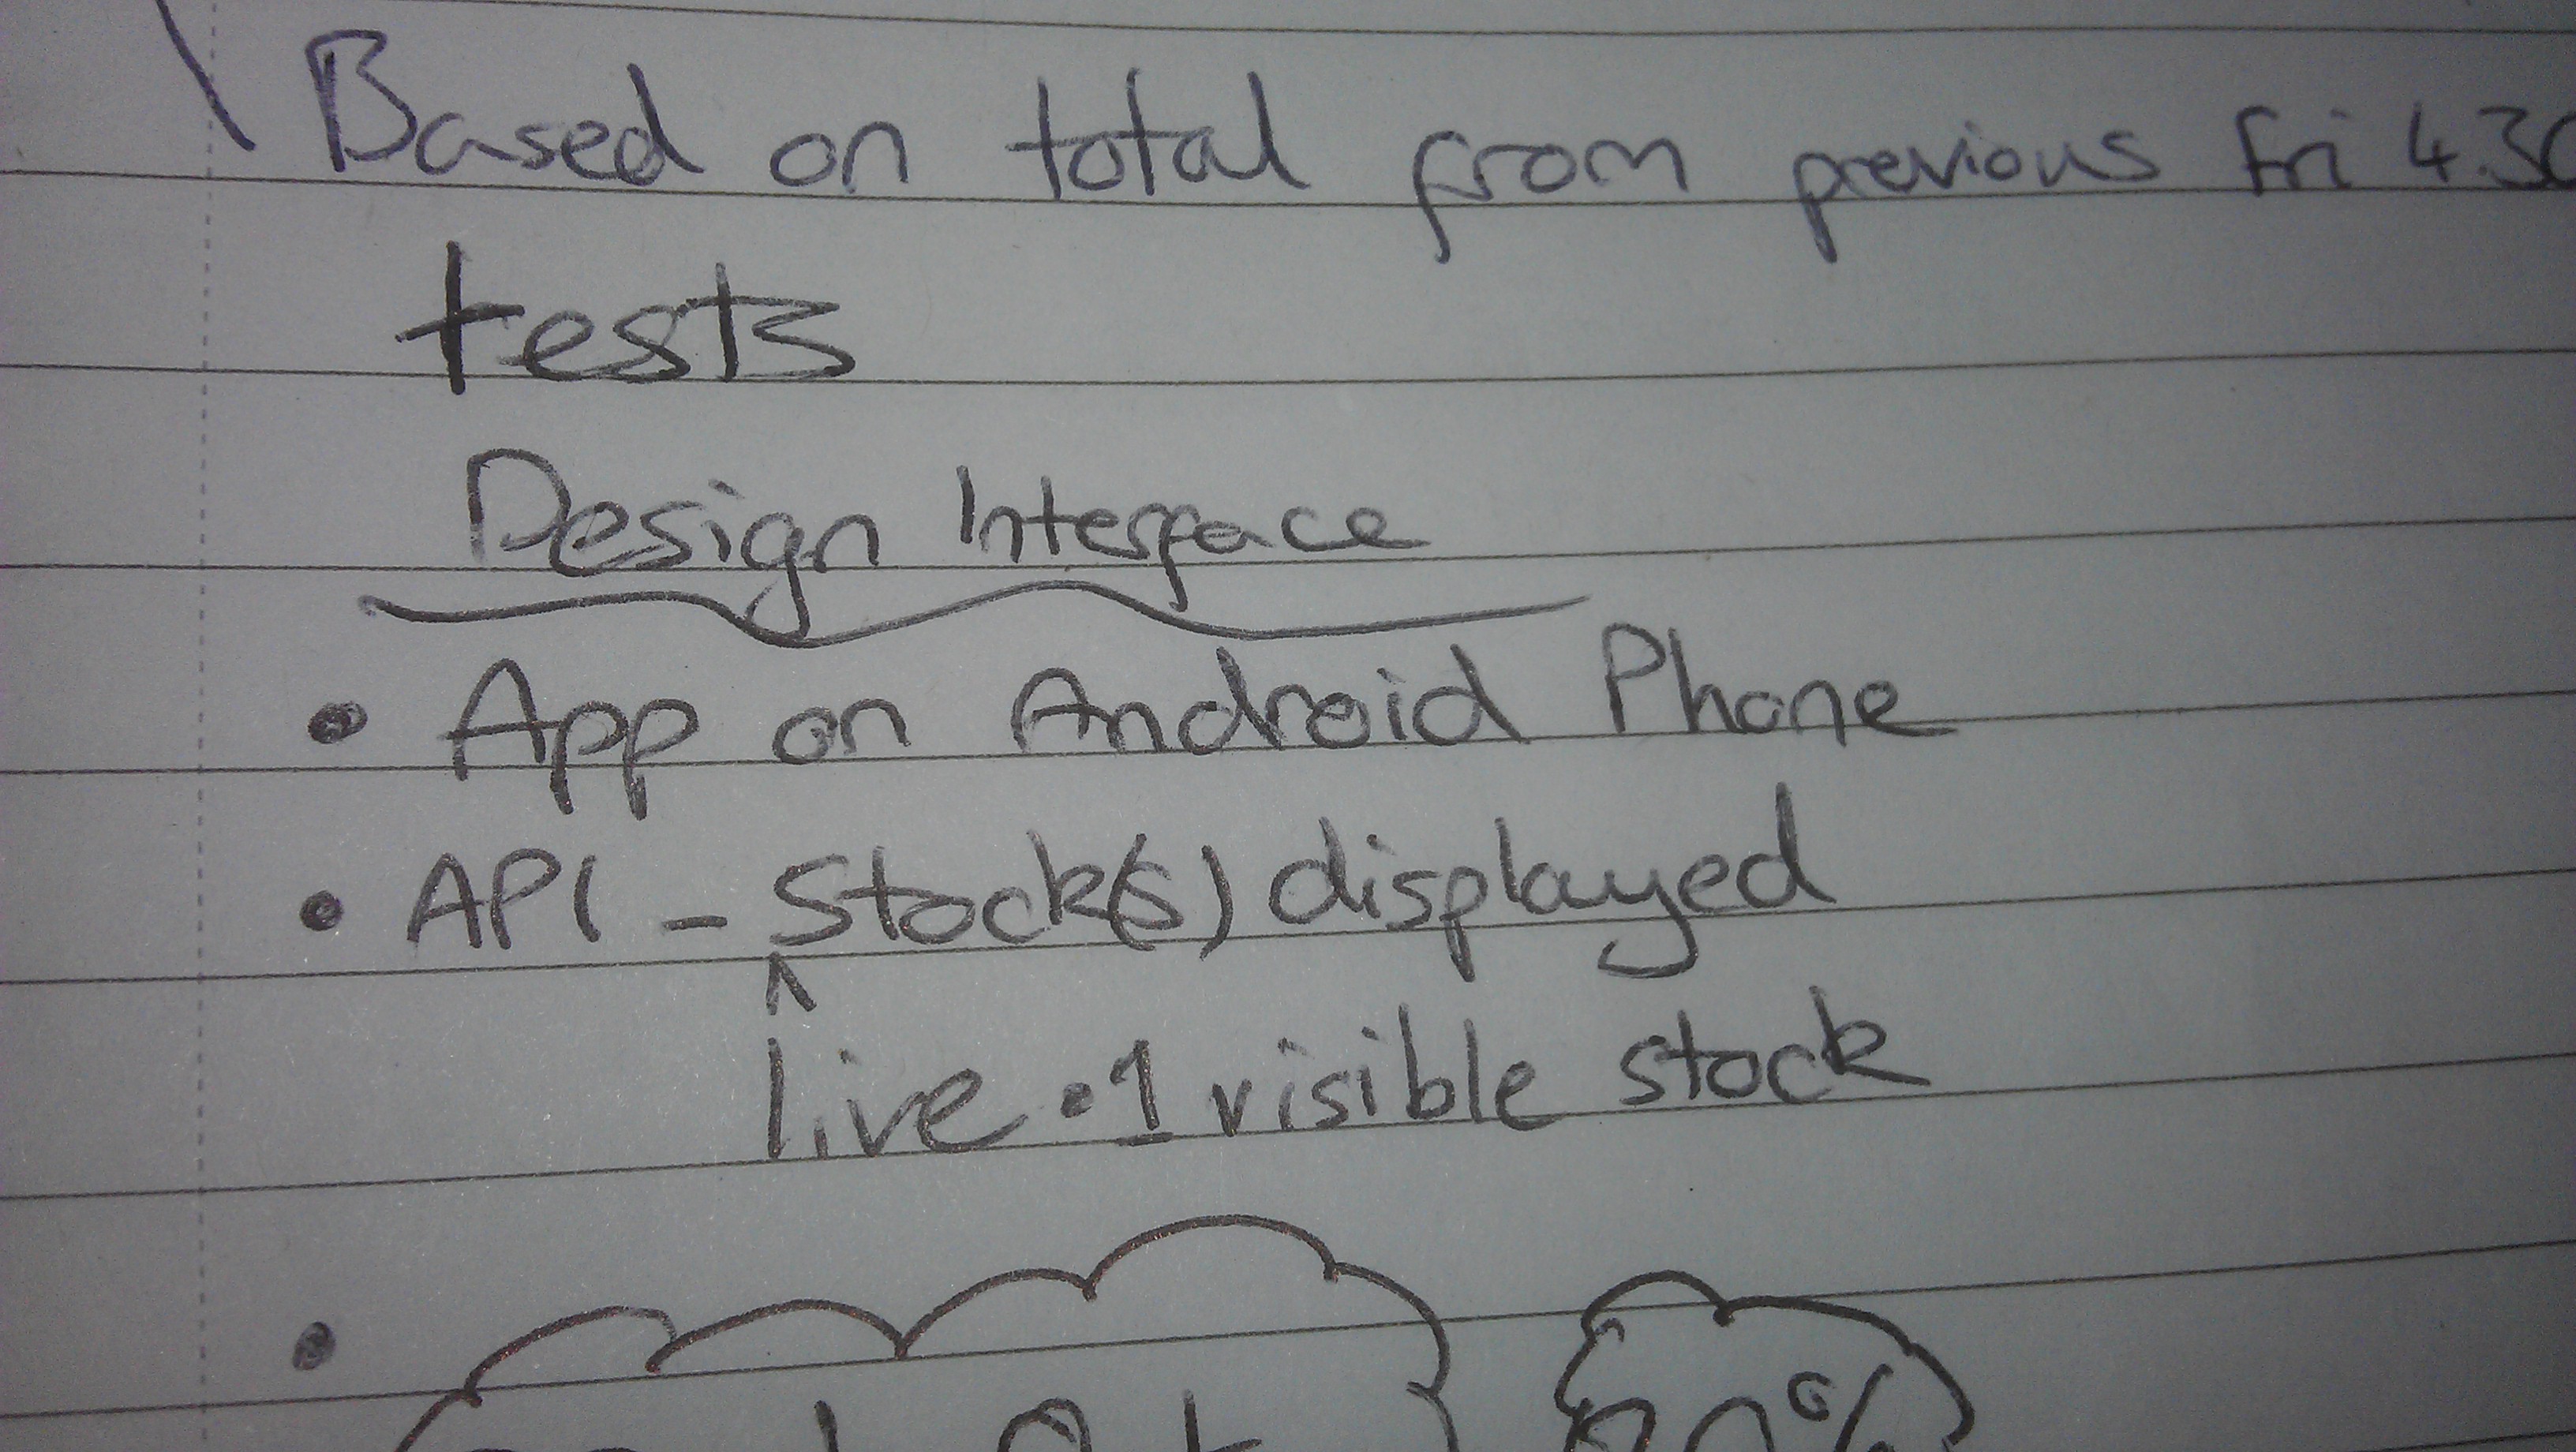 Based on total from previous Fri 4.30
tests
Design Interface
• App on Android Phone
• API - Stock(s) displayed
^
live • 1 visible stock
•